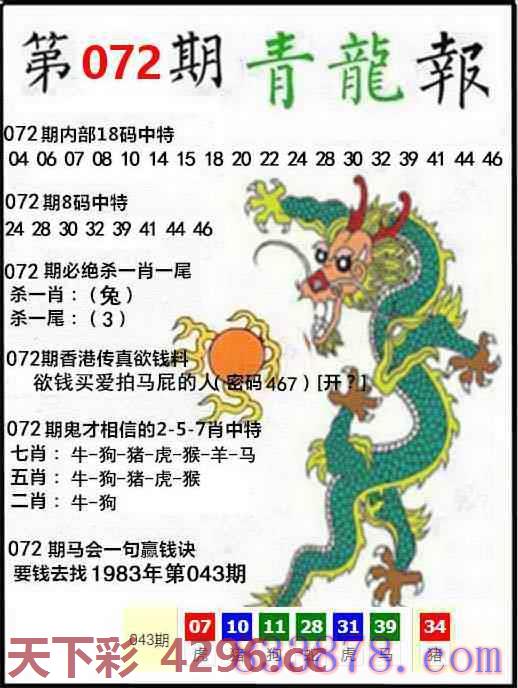 第072期青龍報
072期内部18码中特
04 06 07 08 10 14 15 18 20 22 24 28 30 32 39 41 44 46
072期8码中特
24 28 30 32 39 41 44 46
072期必绝杀一肖一尾
杀一肖：（兔）
杀一尾：（3）
072期香港传真欲钱料
欲钱买爱拍马屁的人（密码467）[开？]
072期鬼才相信的2-5-7肖中特
七肖：牛-狗-猪-虎-猴-羊-马
五肖：牛-狗-猪-虎-猴
二肖：牛-狗
072期马会一句赢钱诀
要钱去找1983年第043期
043期 07 10 11 28 31 39 34
虎 猪 狗 蛇 虎 马 猪
天下彩 4296.cc
878.com